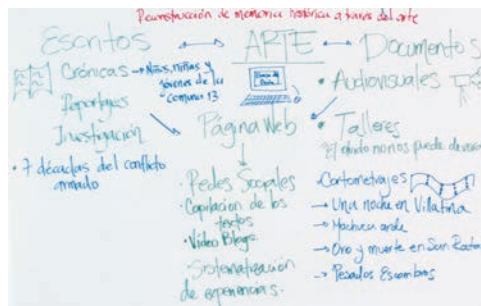 Reconstrucción de memoria histórica a través del arte
Escritos
Crónicas → Niños, niñas y
jóvenes de la
comuna 13
Reportajes
Investigación
• 7 décadas del conflicto
armado
ARTE
Página Web
• Redes Sociales
• Copilación de los
textos
• Video Blogs
Sistematización
de experiencias.
Documentos
• Audiovisuales
• Talleres
"El olvido no nos puede
• Cortometrajes
→ Una noche en Villatina
→ Machuca arde
→ Oro y muerte en San
→ Pesados Escombros